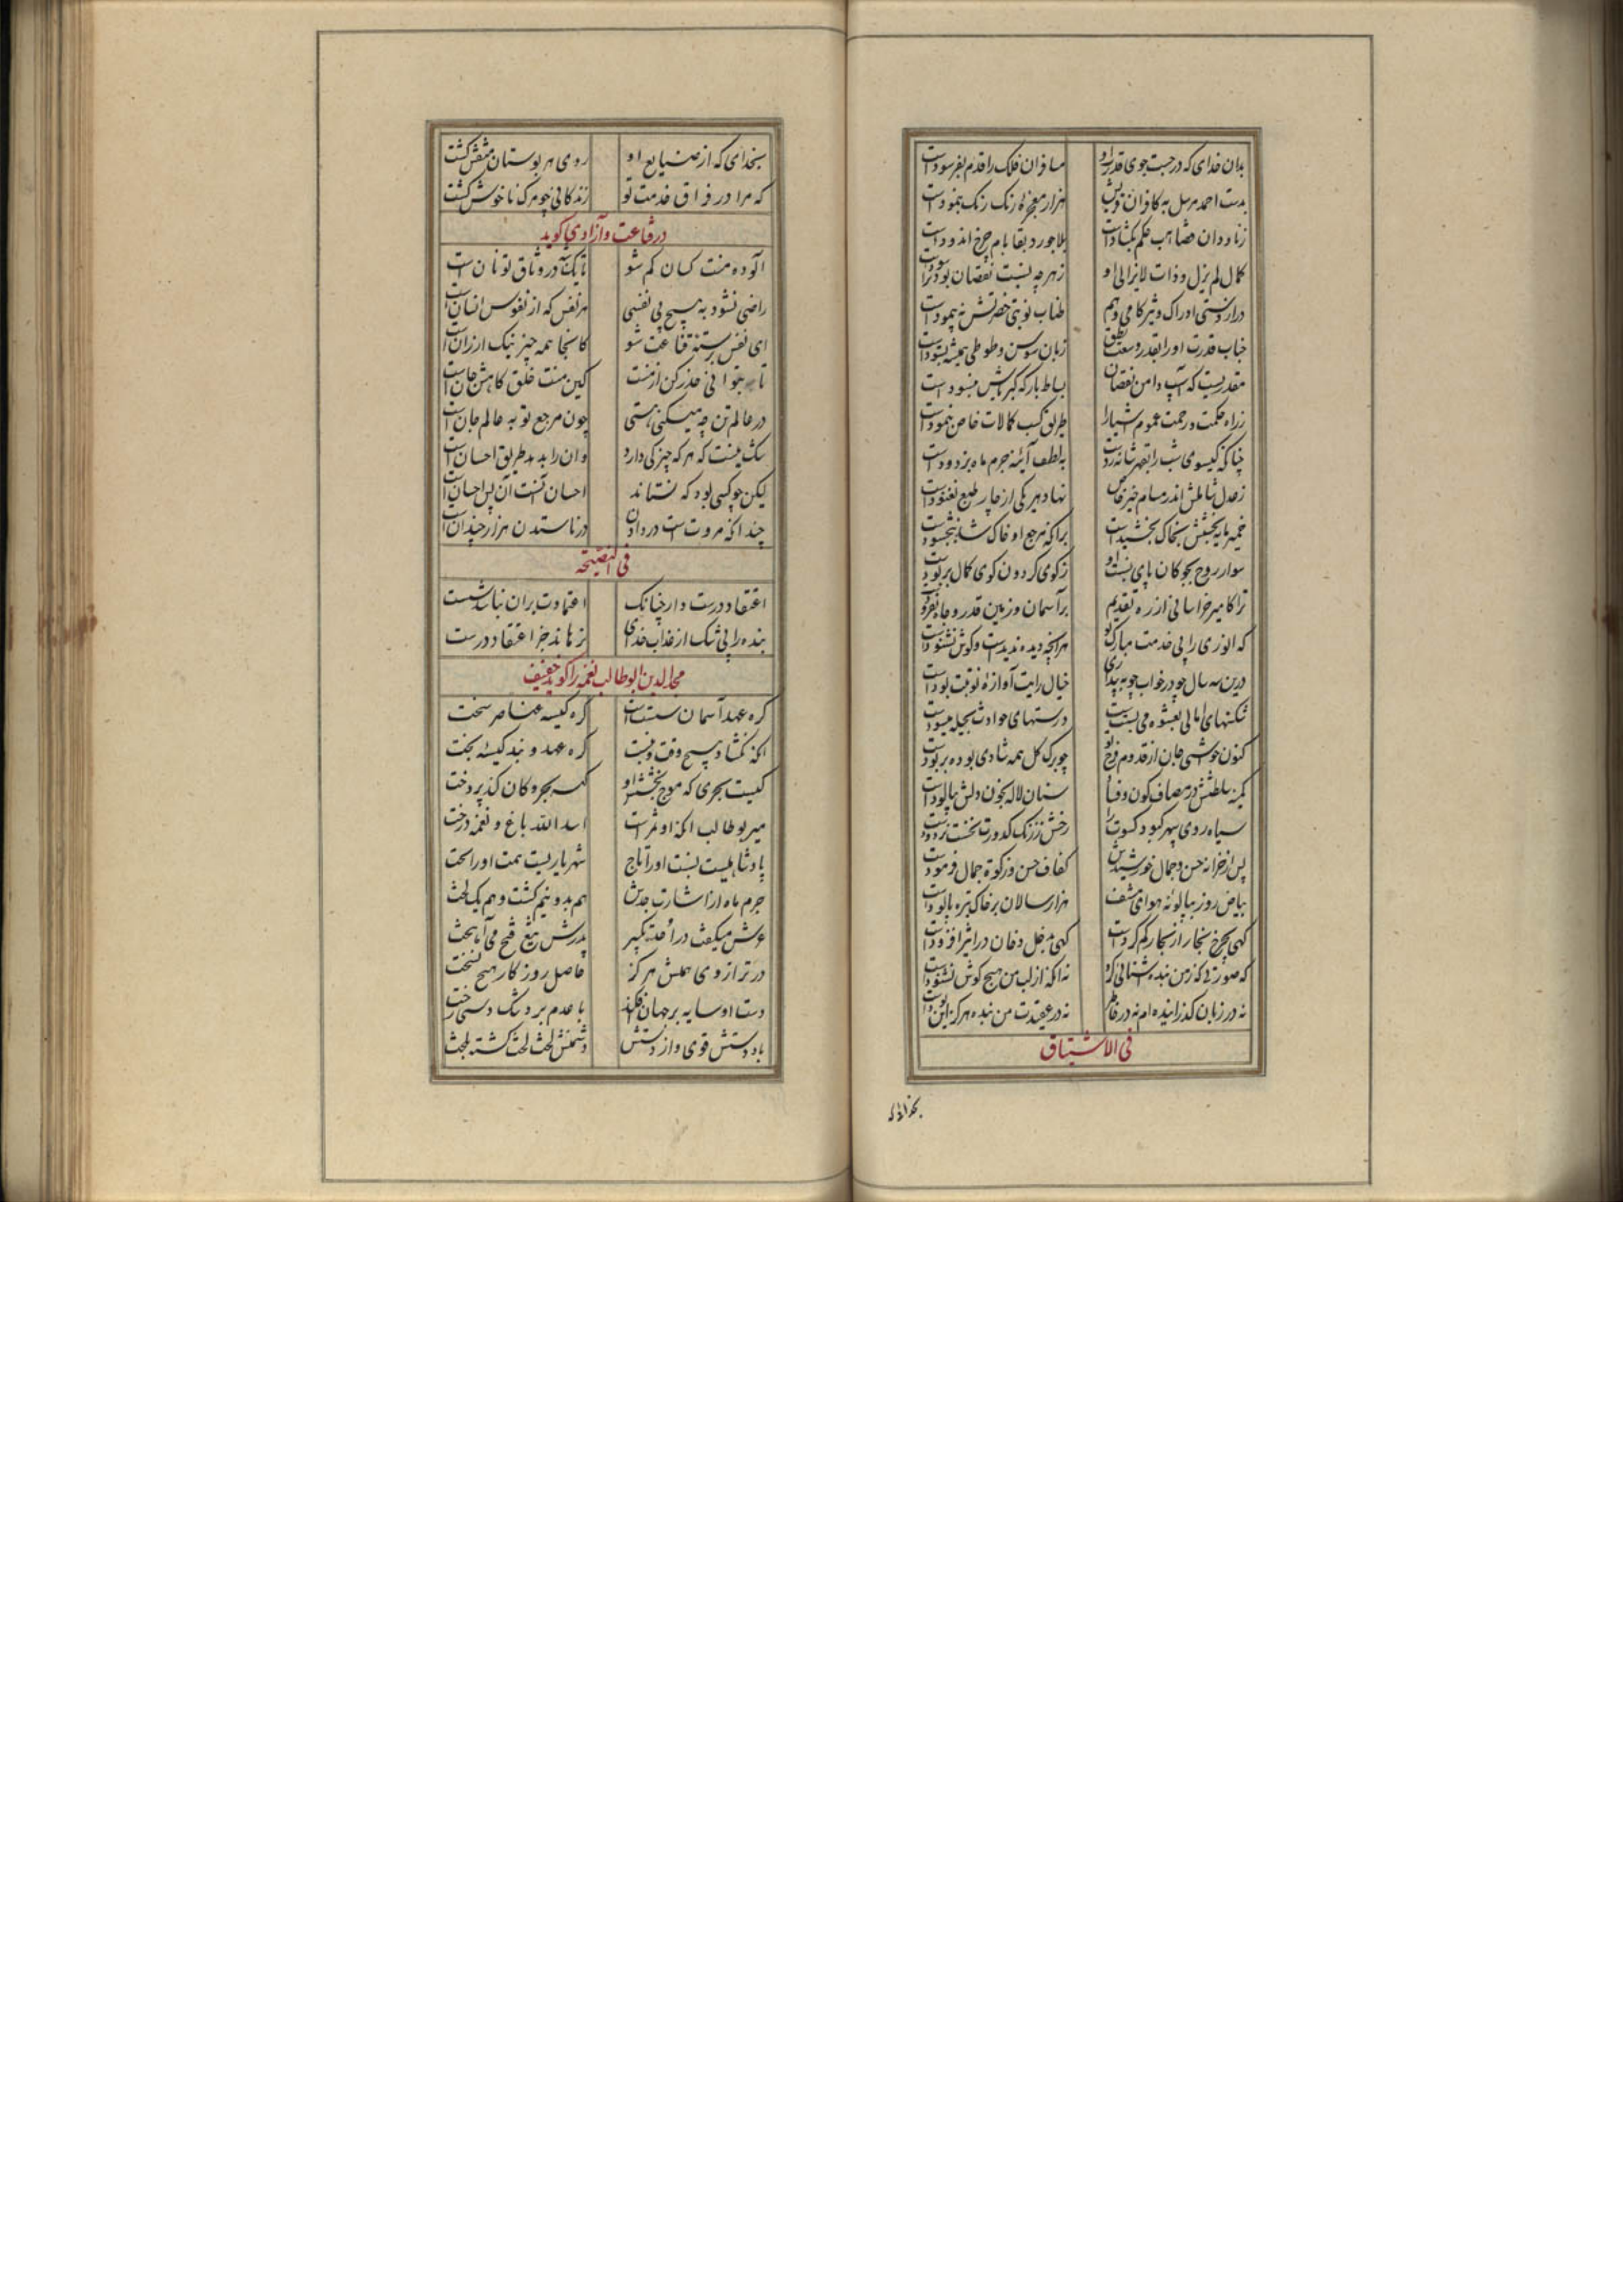 بدان خدای که در جست جوی قدرت او مسافران فلک را قدم بفرسودست
بدست احمد مرسل به کافران قریش هزار معجزه رنک رنک بنمودست
بلاجورد بقا بام چرخ اندودست
کمال لم یزل و ذات لایزالی او زهر چه نسبت نقصان بود
طناب نوبتی حضرتش نه پیمودست
زبان سوسن و طوطی همیشه بستودست
مقدریست که آسیب دامن نقصان بساط بارکه کبریاش نبسودست
زراه حکمت و رحمت عموم اشیا را طریق کسب کمالات خاص بنمودست
چنانکه کیسوی شب را بقهر شانه زدست بلطف آینه جرم ماه بزدودست
نهاد هر یکی از چار طبع نغنودست
خمیر مایه بخشش بخاک بخشیدست
سوار روح بچوکان پای بست او زکوی کردون کوی کمال بربودست
ترا کامیر خراسانی از ره تقدیم بر آسمان و زمین قدر و جاه
که انوری را بی خدمت مبارک تو هر آنچه دیده ندیدست و کوش نشنودست
درین سه سال چو در خواب چو به بیداری خیال رایت و آوازه نوبت بودست
شکنهای امانی بعشوه می بستست درستهای حوادث بحیله
کنون خوشی جان از قدوم فرخ تو چو برک کل همه شادی
در مصاف کون و فساد سنان لاله بخون دلش بیالودست
سیاه روی سپهر کبود کسوت را رخش ز زنک کدورت نخست بزدودست
پس از خزانه حسن و جمال خورشیدش کفاف حسن و زکوة جمال فرمودست
بیاض روز بپالونه هوای مشف هزار سالان بر خاک تیره پالودست
کهی بچرخ بخار از بحار کم کردست کهی بدخل دخان در اثیر افزودست
که صورتی که زمن بنده نه آنکه از لب من هیچ کوش نشنودست
نه در زبان کذرانیده ام نه در خاطر نه در عقیدت من بنده هرکز این بودست
فی الاشتیاق
بخدای که
بخدای که از صنایع او روی هر بوستان منقش کشت
که مرا در فراق خدمت تو زندکانی چو مرک ناخوش کشت
در قناعت و آزادی کوید
آلوده منت کسان کم شو تا یک شبه در وثاق تو نان است
راضی نشود به هیچ بی نفسی هر نفس که از نفوس انسان است
ای نفس برسته قناعت شو کانجا همه چیز نیک ارزان است
تا بتوانی حذر کن از منت کین منت خلق کاهش جان است
در عالم تن چه میکنی هستی چون مرجع تو به عالم جان است
شک نیست که هر که چیزکی دارد وان را بدهد طریق احسان است
لیکن چو کسی بود که نستاند احسان آنست آن پس احسان است
چندانکه مروت است در دادن در ناستدن هزار چندان است
فی النصیحة
اعتقاد درست دار چنانک اعتمادت بران نباید سست
بنده را بی شک از عذاب خدای نرهاند جز اعتقاد درست
مجدالدین ابوطالب نغمه را کوید
کره عهد آسمان سست است کره کیسه عناصر سخت
آنکه نکشاد هیچ وقت و نبست کره عهد و بند کیسه بخت
کیست بحری که موج بخشش او کیسه بحر و کان کند پردخت
میر بوطالب آنکه او ثمرست اسد الله باغ و نغمه درخت
پادشاهیست نسبت او را تاج شهریاریست همت او را تخت
جرم ماه از اشارت جدش هم بدو نیم کشت و هم یک لخت
عرش میکفت در احد تکبیر پدرش تیغ فتح می آهخت
در ترازوی همتش هرکز حاصل روزکار هیچ نسخت
دست او سایه بر جهان افکند با عدم برد تنک دستی رخت
باد دستش قوی و از دستش دشمنش لخت لخت کشته بلخت